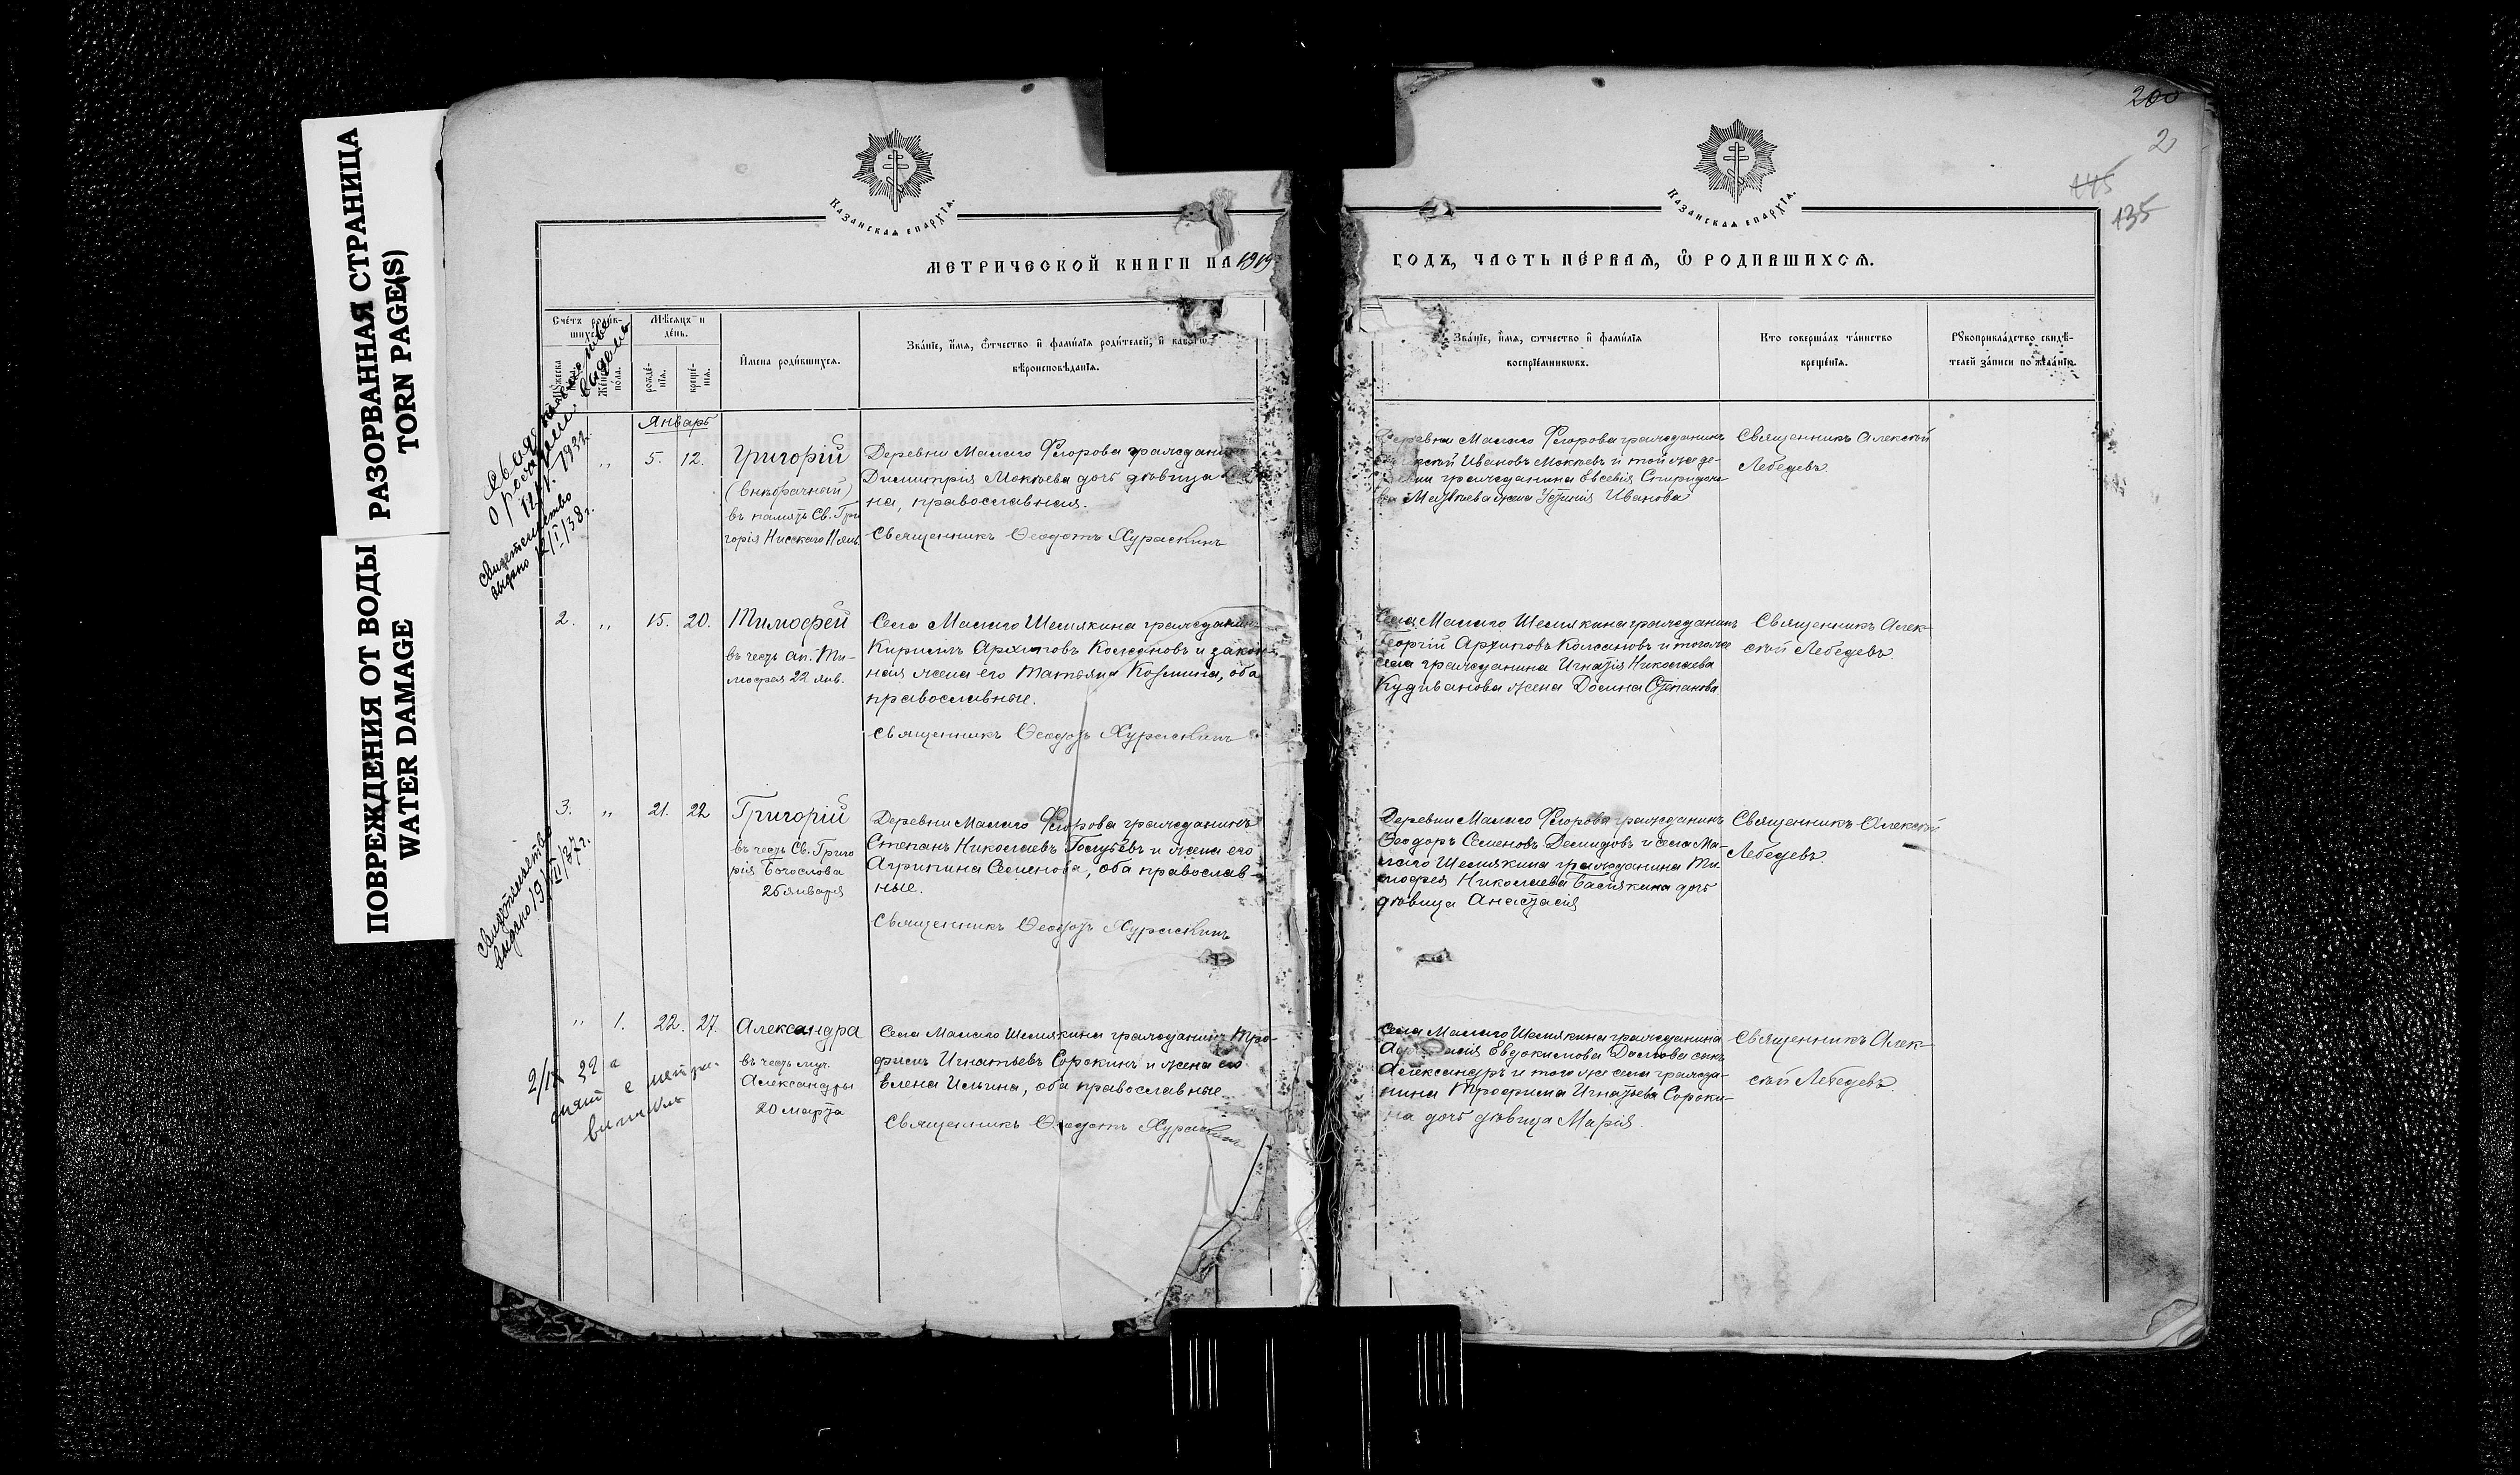 РАЗОРВАННАЯ СТРАНИЦА
TORN PAGE(S)
ПОВРЕЖДЕНИЯ ОТ ВОДЫ
WATER DAMAGE
200
2
145
135
Казанская епархїа.
Казанская епархїа.
МЕТРИЧЕСКОЙ КНИГИ НА 1919
ГОДЪ, ЧАСТЬ ПЕ́РВАЯ, Ѽ РОДИВШИХСЯ.
Сче́тъ роди́в-
шихся
Мѣ́сяцъ и
де́нь.
Же́нска
по́ла.
рожде́-
нїя.
креще́-
нїя.
И҆мена роди́вшихся.
Зва́нїе, и҆́мя, ѻ҆́тчество и҆ фами́лїя роди́телей, и҆
вѣроисповѣ́данїя.
Зва́нїе, и҆́мя, ѻ҆тчество и҆ фами́лїя
воспрїе́мникѡвъ.
Кто соверша́лъ та́инство
креще́нїя.
Рꙋкоприкла́дство свидѣ́-
телей за́писи по жела́нїю.
Январь
„ 5. 12. Григорій
(внебрачный)
въ память Св. Гри
горія Нисскаго 11 янв.
Деревни Малаго Ѳедорова
Димитрія Мокѣева дочь дѣвица
на, православная.
Священникъ Ѳеодотъ Хураскинъ
Деревни Малаго Ѳедорова гражданинъ
Ивановъ Мокѣевъ и той же де-
гражданина Евсевія Спиридоно
жена Устинія Иванова
Священникъ Алексѣй
Лебедевъ.
1932 г.
Свидетельство
выдано 12/I/38 г.
2. „ 15. 20. Тимофей
въ честь ап. Ти-
мофея 22 янв.
Села Малаго Шемякина гражданинъ
Кириллъ Архиповъ Колсановъ и закон-
ная жена его Татьяна Козмина, оба
православные.
Священникъ Ѳеодотъ Хураскинъ
Села Малаго Шемякина гражданинъ
Георгій Архиповъ Колсановъ и того же
села гражданина Игнатія Николаева
Кудиванова жена Домна Степанова
Священникъ Алек-
сѣй Лебедевъ.
3. „ 21. 22 Григорій
въ честь Св. Григо
рія Богослова
25 января
Деревни Малаго Ѳедорова гражданинъ
Степанъ Николаевъ Голубевъ и жена его
Агрипина Семенова, оба православ-
ные.
Священникъ Ѳеодотъ Хураскинъ
Деревни Малаго Ѳедорова гражданинъ
Ѳеодоръ Семеновъ Демидовъ и села Ма-
лаго Шемякина гражданина Ти
мофея Николаева дочь
дѣвица Анастасія
Священникъ Алексѣй
Лебедевъ.
Свидетельство
выдано
„ 1. 22. 27. Александра
въ честь муч.
Александры
20 марта
Села Малаго Шемякина гражданинъ Тро-
фимъ Игнатьевъ Сорокинъ и жена его
Елена Ильина, оба православные.
Священникъ Ѳеодотъ Хураскинъ
Села Малаго Шемякина гражданина
Евдокимова сынъ
Александръ и того же села гражда-
нина Трофима Игнатьева Сороки-
на дочь дѣвица Марія.
Священникъ Алек-
сѣй Лебедевъ.